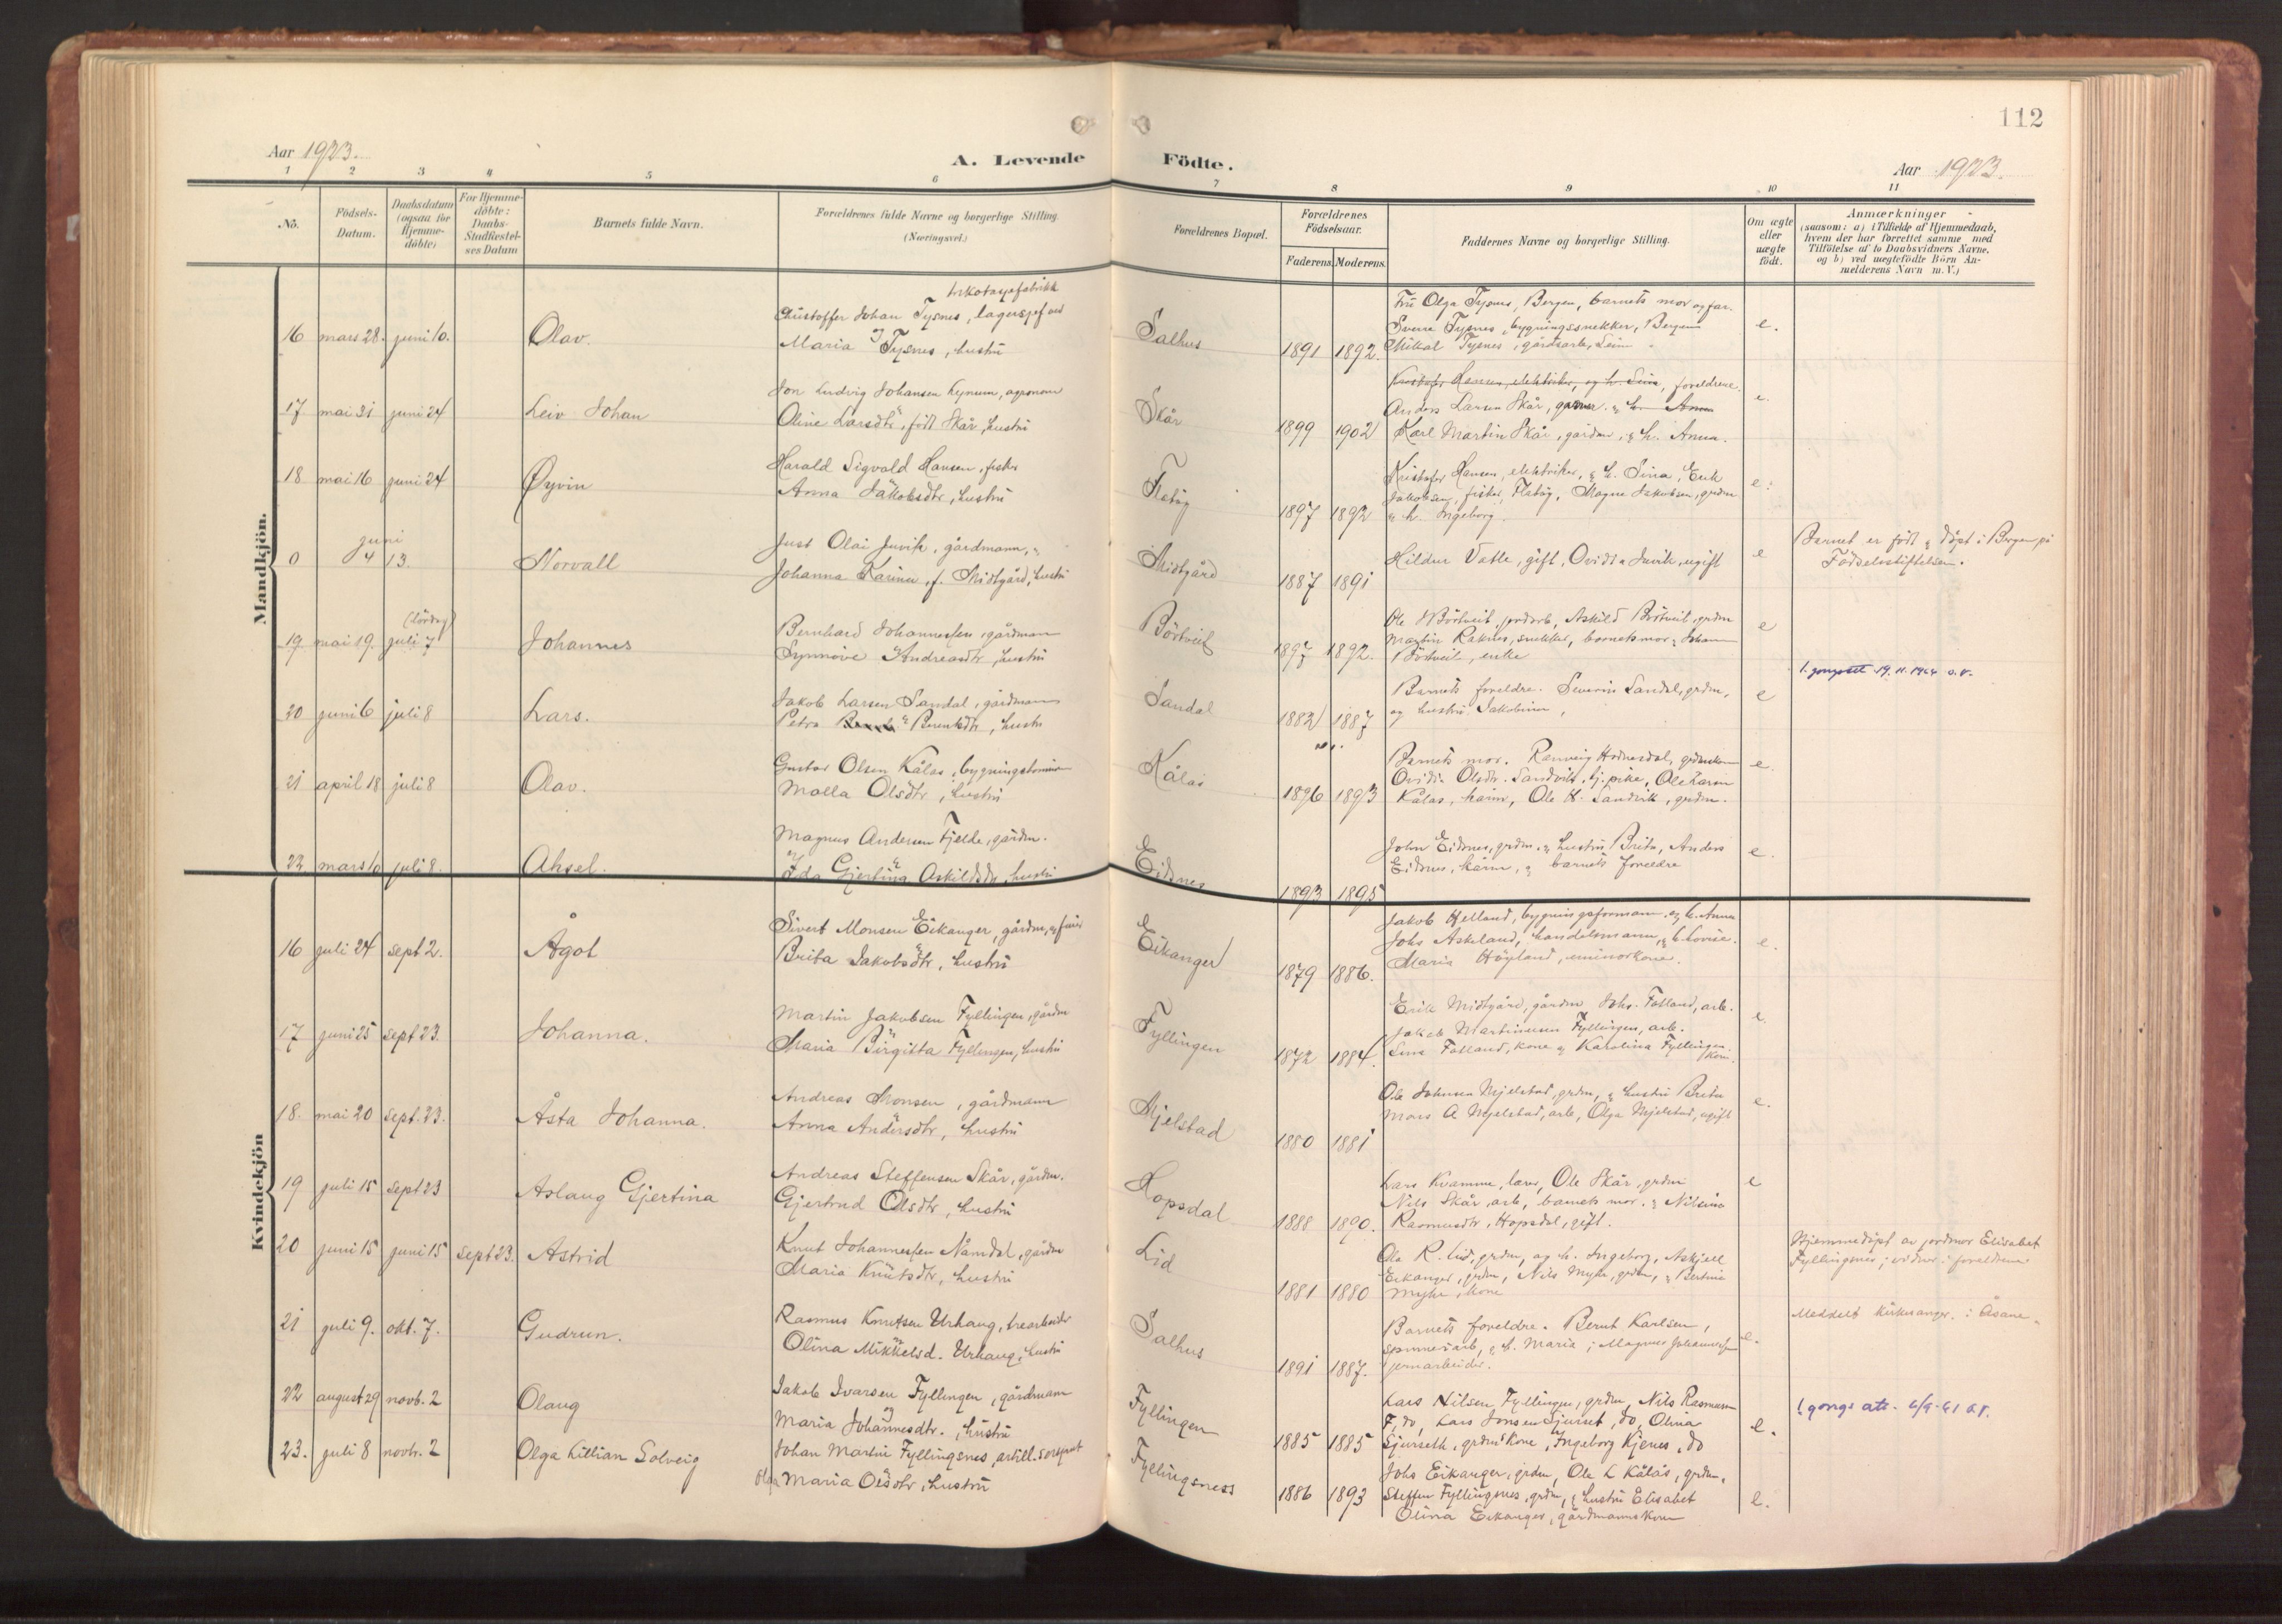 112
Aar 1923.
A. Levende Födte.
Aar 1923.
1 2 3 4 5 6 7 8 9 10 11
No.
Födsels-
Datum.
Daabsdatum
(ogsaa for
Hjemme-
döbte)
For Hjemme-
döbte:
Daabs-
Stadfæstel-
ses Datum
Barnets fulde Navn.
Forældrenes fulde Navne og borgerlige Stilling.
(Næringsvei.)
Forældrenes Bopæl.
Forældrenes
Födselsaar.
Faderens. Moderens.
Faddernes Navne og borgerlige Stilling.
Om ægte
eller
uægte
födt.
Anmærkninger
(saasom: a) i Tilfælde af Hjemmedaab,
hvem der har forrettet samme med
Tilföielse af to Daabsvidners Navne.
og b) ved uægtefödte Börn An-
melderens Navn m. V.)
Mandkjön.
16 mars 28. juni 10. Olav.
trikotagefabrikk
Christoffer Johan Tysnes, lagersjef ved
Maria Tysnes, hustru
Salhus 1891 1892.
Fru Olga Tysnes, Bergen, barnets mor og far.
Sverre Tysnes, bygningssnekker, Bergen
Mikal Tysnes, gårdsarb., Seim
e.
17 mai 31 juni 24 Leiv Johan
Jon Ludvig Johansen Kynum, agronom
Oline Larsdtr, født Skår, hustru
Skår 1899 1902
Kristofer Hansen, elektriker, og h. Sina, foreldrene.
Anders Larsen Skår, h. Anna
Karl Martin Skår, gårdm., & h. Anna.
e.
18 mai 16 juni 24 Øyvin
Harald Sigvald Hansen, fisker
Anna Jakobsdtr, hustru
Fletöy 1897 1892
Kristofer Hansen, elektriker, & h. Sina, Erik
Jakobsen, fisker, Flatöy, Magne Jakobsen, grdm
& h. Ingeborg.
e.
0 juni 4 13. Norvall
Just Olai Juvik, gårdmann, &
Johanna Karina, f. Midtgård, hustru
Midtgård 1887 1891
Hildur Vatle, gift, Ovidia Juvik, ugift
e
Barnet er född & döpt i Bergen på
Födselsstiftelsen.
19 mai 19. (Lördag) juli 7 Johannes
Bernhard Johannessen, gårdmann
Synnöve Andreasdtr, hustru
Börtveit 1897 1892.
Ole Börtveit, jordarb, Askild Börtveit, grdm
Martin Raknes, snekker, barnets mor & Johanna
Börtveit, enke
e
20 juni 6 juli 8 Lars.
Jakob Larsen Sandal, gårdmann
Petra Berentsdtr, hustru
Sandal 1882 1887
Barnets foreldre. Severin Sandal, grdm,
og hustru Jakobina,
e
1. gongsatt 19.11.1964 o.r.
21 april 18 juli 8 Olav.
Gustav Olsen Kålås, bygningstömmer
Malla Olsdtr, hustru
Kålås 1896 1893
Barnets mor. Ranveig Hodnesdal, grdmkone
Ovidia Olsdtr. Sandvik, tj.pike, Ole Larsen
Kålås, kårm, Ole H. Sandvik, grdm.
e.
22 mars 10 juli 8. Aksel.
Magnus Andersen Fjelde, gårdm.
og
Ida Gjertina Askildsdtr, hustru
Eidsnes 1893 1895
John Eidsnes, grdm. & hustru Brita, Anders
Eidsnes, kårm, & barnets foreldre
e.
Kvindekjön
16 juli 24 sept 2. Ågot
Sivert Monsen Eikanger, gårdm, & furer
Brita Jakobsdtr, hustru
Eikanger 1879 1886.
Jakob Helland, bygningsformann, og h. Anna
Johs Askeland, handelsmann, & h. Lovise.
Maria Höyland, kone.
e.
17 juni 25 sept 23. Johanna.
Martin Jakobsen Fyllingen, gårdm
Maria Birgitta Fyllingen, hustru
Fyllingen 1872 1884.
Erik Midtgård, gårdm, Johs. Fotland, arb.
Jakob Martinusen Fyllingen, arb.
Sina Fotland, kone & Karolina Fyllingen
kone.
e.
18. mai 20 sept. 23. Åsta Johanna.
Andreas Monsen, gårdmann
Anna Andersdtr, hustru
Mjelstad 1880 1881
Ole Johnsen Mjelstad, grdm, & hustru Brita
Mons A Mjelstad, arb, Olga Mjelstad, ugift
e.
19 juli 15 sept 23 Aslaug Gjertina
Andreas Steffensen Skår, gårdm.
Gjertrud Olsdtr, hustru
Hopsdal 1888 1890.
Lars Kvamme, lærer, Ole Skår, grdm
Nils Skår, arb, barnets mor. & Nilsina
Rasmusdtr, Hopsdal, gift.
e
20 juni 15 juni 15 sept 23. Astrid
Knut Johannessen Nåmdal, gårdm
Maria Knutsdtr, hustru
Lid 1881 1880
Ole R. Lid, grdm, og h. Ingeborg, Askjell
Eikanger, grdm, Nils Myhr, grdm, & Bertina
Myhr, kone
Hjemmedöpt av jordmor Elisabet
Fyllingsnes; vidner: foreldrene
21 juli 9. okt. 7. Gudrun.
Rasmus Knutsen Urhaug, trearbeider
Olina Mikkelsd. Urhaug, hustru
Salhus 1891 1887.
Barnets foreldre. Bernt Karlsen,
spinneriarb, & h. Maria; Magnus Johannessen
jernarbeider.
e.
Meddelt kirkesanger. i Åsane.
22 august 29 novb. 2 Olaug
Jakob Ivarsen Fyllingen, gårdmann
og
Maria Johannesdtr., hustru
Fyllingen 1885 1885
Lars Nilsen Fyllingen, grdm, Nils Rasmussen
F, do, Lars Jonsen Sjurset, do, Olina
Sjurseth, grdm's kone, Ingeborg Kjenes, do
e.
1. gongs att. 6/9-61 o.r.
23. juli 8 novb. 2 Olga Lillian Solveig
Johan Martin Fyllingsnes, artill. sersjant
Olga Maria Olsdtr, hustru
Fyllingsness 1886 1893
Johs Eikanger, grdm, Ole L Kålås, grdm,
Steffen Fyllingsnes, grdm, & hustru Elisabet
Olina Eikanger, gårdmannskone
e.